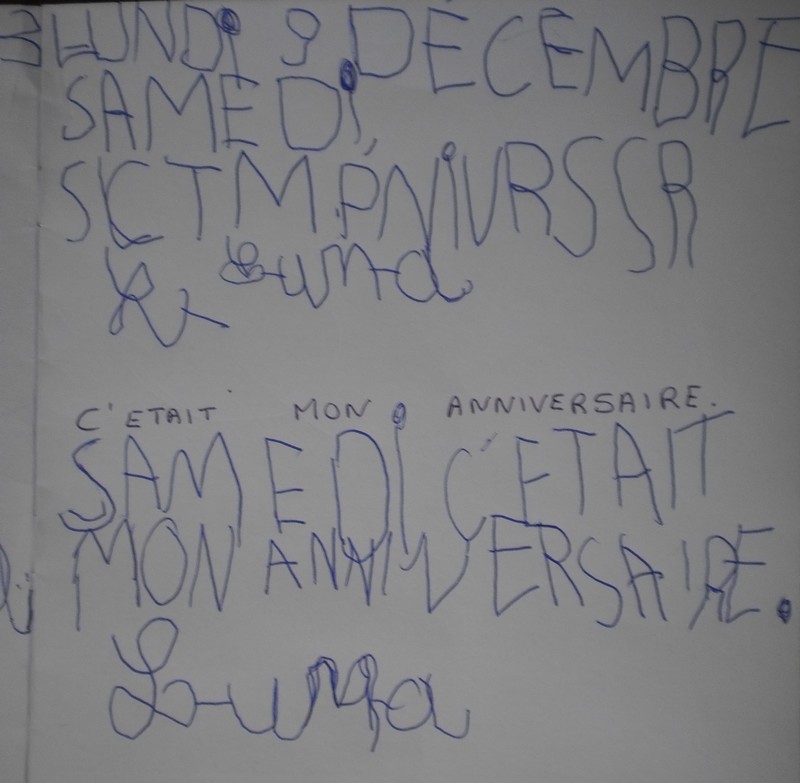 LUNDi 9 DECEMBRE
SAMEDi
SCTMPNiVRSSR
Luna
C'ETAIT MON ANNIVERSAIRE.
SAMEDi C'ETAIT
MON ANNIVERSAIRE.
Luna